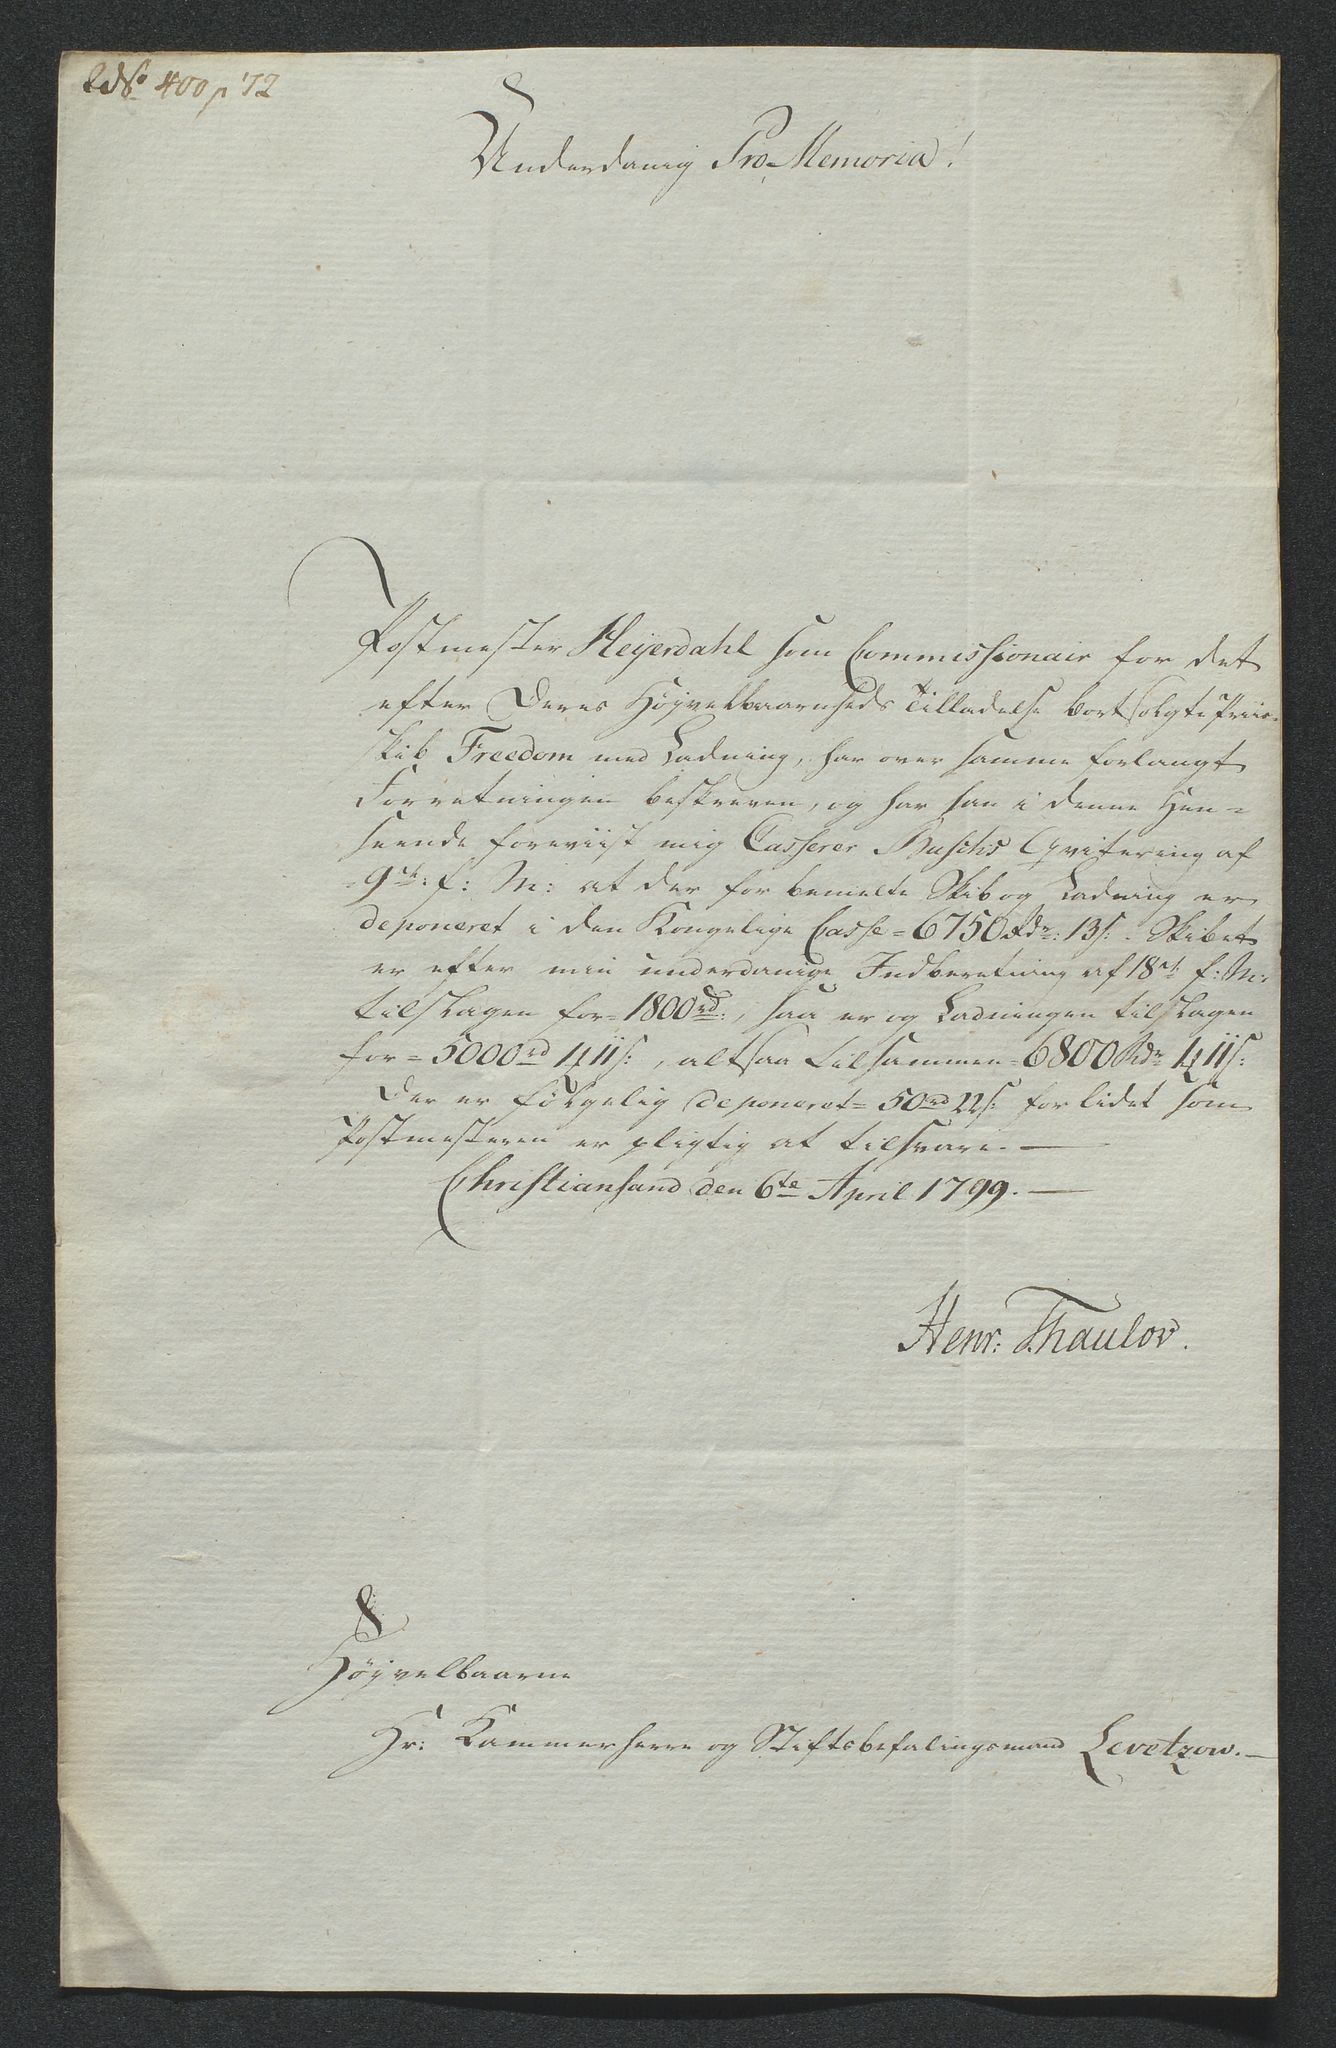 400 p 72
Underdanig Pro Memoria!
Postmester Heyerdahl som Commissionair for det
efter Deres Høyvelbaarenheds Tilladelse bortsolgte Priise
skib Freedom med Ladning, har over samme forlangt
Forretningen beskreven, og har han i denne Hen=
seende foreviist mig Casserer Buschs Qvitering af
9de: f: M: at der for bemelte Skib og Ladning er
deponeret i den Kongelige Casse = 6750 Rdr: 13 s: Skibet
er efter min underdanige Indberetning af 18de f: M:
tilslagen for = 1800 rd:, saa er og Ladningen tilslagen
for = 5000 rd 11 s:, altsaa tilsammen = 6800 Rdr 11 s:
Der er følgelig deponeret = 50 rd 22 s: for lidet som
Postmesteren er pligtig at tilsvare. —
Christiansand den 6te April 1799. —
Henr: Thaulov.
Høyvelbaarne
Hr: Kammerherre og Stiftsbefalingsmand Levetzow. —